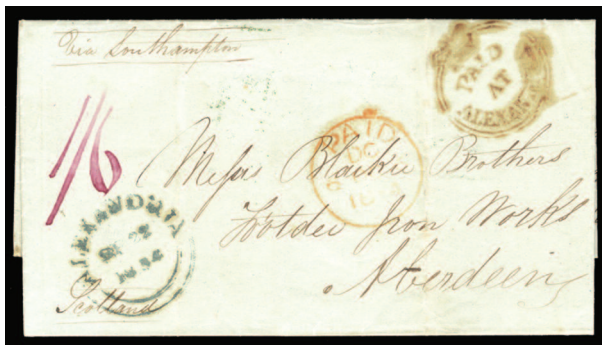 Via Southampton
PAID
AT
ALEXAN
1/6
PAID
DC
18
Messrs Blaikie Brothers
Footdee Iron Works
Aberdeen
ALEXANDRIA
Scotland